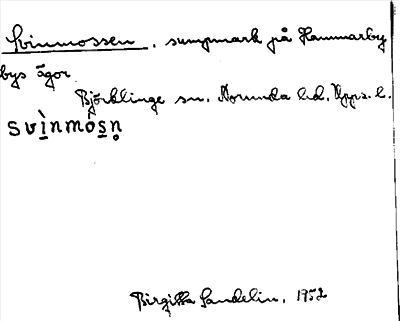 Svinmossen, sumpmark på Hammarby
bys ägor
Björklinge sn. Norunda hd. Upps. l.
svìnmósn̥
Birgitta Sandelin, 1952